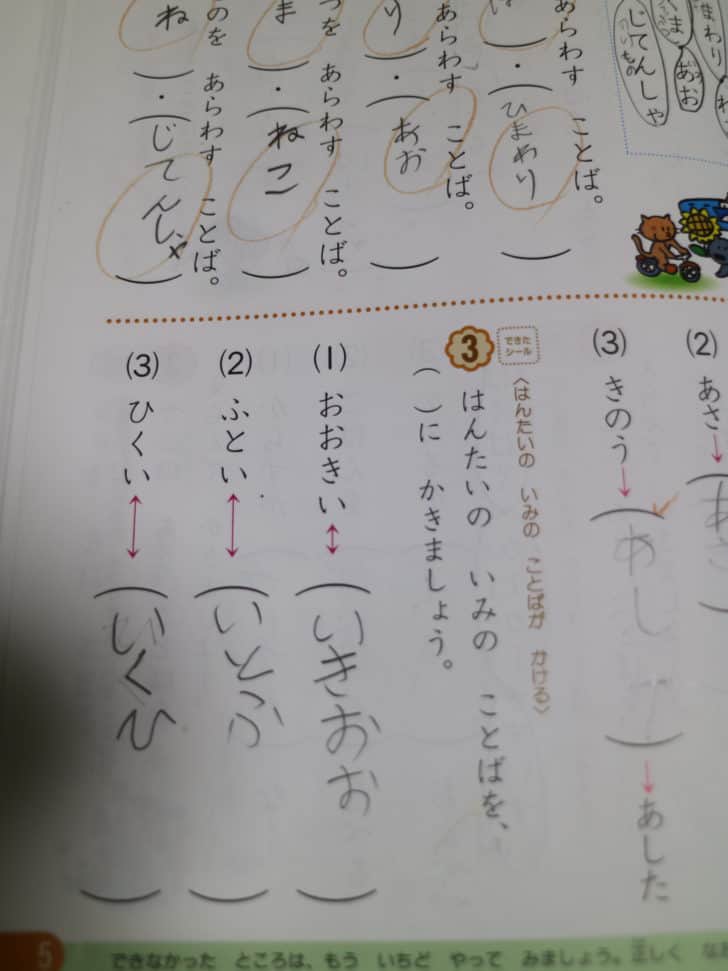 まわり
くま
あお
じてんしゃ
あらわす ことば。
ひまわり
あらわす ことば。
り
あお
つを あらわす ことば。
ま
ねこ
のを あらわす ことば。
ね
じてんしゃ
(2) あさ→
(3) きのう→( )→あした
できた
シール
3
〈はんたいの いみの ことばが かける〉
はんたいの いみの ことばを、
( )に かきましょう。
(1) おおきい↔(いきおお)
(2) ふとい↔(いとふ)
(3) ひくい↔(いくひ)
5
できなかった ところは、もう いちど やって みましょう。正しく